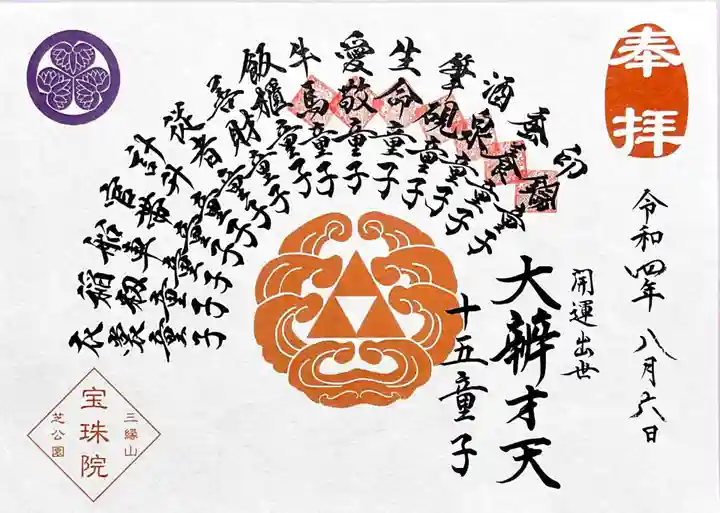 奉拝
令和四年八月六日
開運出世
大辨才天
十五童子
印鑰童子
蚕養童子
酒泉童子
筆硯童子
生命童子
愛敬童子
牛馬童子
飯櫃童子
善財童子
従者童子
計升童子
官帯童子
船車童子
童子
衣裳童子
三縁山
宝珠院
芝公園